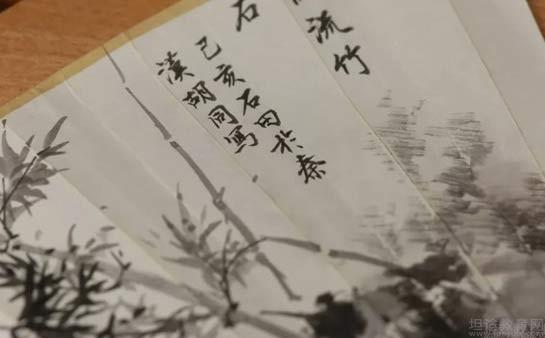 流竹
石
己亥石田於秦
漢胡同寫
坦途教育网